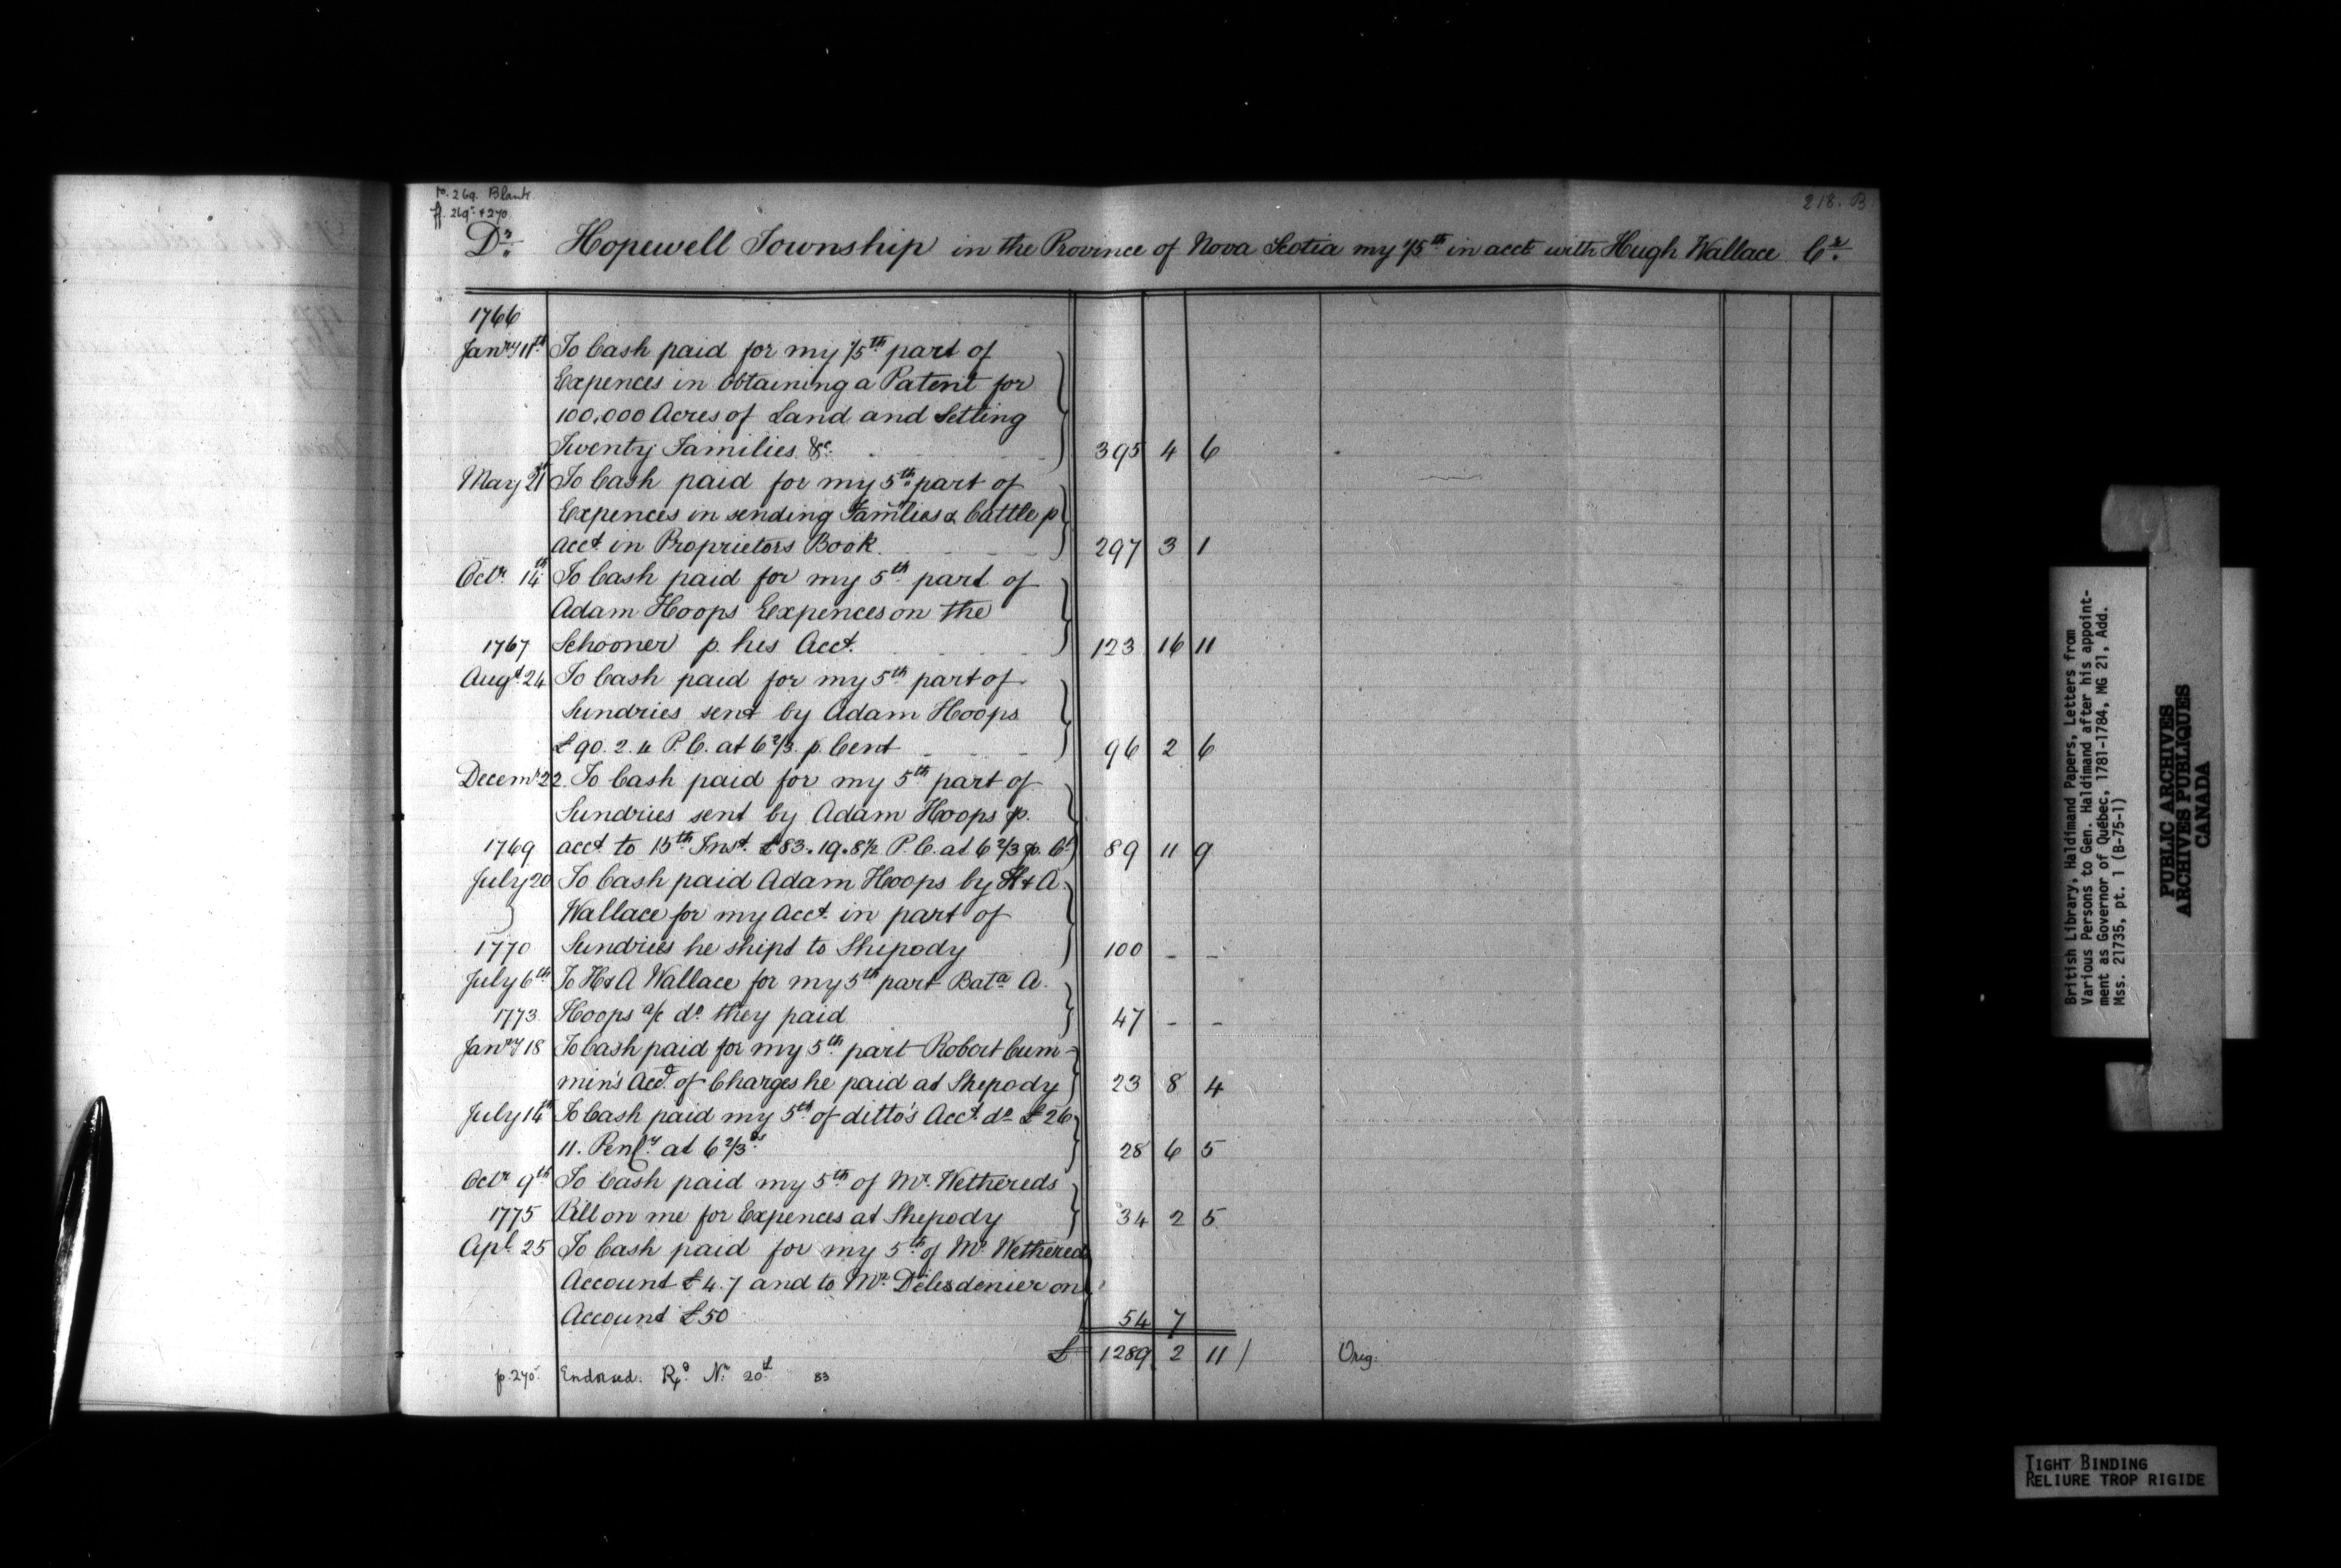 p. 269. Blank
ff. 269. & 270.
218. B
Dr. Hopewell Township in the Province of Nova Scotia my 1/5th in acct with Hugh Wallace Cr.
1766
Janry 11th To Cash paid for my 1/5th part of
Expences in Obtaining a Patent for
100,000 Acres of Land and Setling
Twenty Families &c. 395 4 6
May 21st To Cash paid for my 5th part of
Expences in sending Families & Cattle p
Acct in Proprietors Book. 297 3 1
Octr 14th To Cash paid for my 5th part of
Adam Hoops Expences on the
1767 Schooner p. his Acct. 123 16 11
Augt 24 To Cash paid for my 5th part of
Sundries sent by Adam Hoops
£90. 2. 4 P.C. at 6 2/3 p. Cent 96 2 6
Decemr 22. To Cash paid for my 5th part of
Sundries sent by Adam Hoops p.
1769 acct to 15th Inst. £83.19.8½ P.C. at 6 2/3 p. Ct 89 11 9
July 20 To Cash paid Adam Hoops by H & A
Wallace for my Acct. in part of
1770 Sundries he shipt to Shepody 100 - -
July 6th To H & A Wallace for my 5th part Bala A.
1773. Hoops a/c do. they paid 47 - -
Janry 18 To Cash paid for my 5th part Robert Cum-
min's Acct. of Charges he paid at Shepody 23 8 4
July 14th To Cash paid my 5th of ditto's Acct. do £26
11. Penly at 6 2/3ds 28 6 5
Octr 9th To Cash paid my 5th of Mr. Wethereds
1775 Bill on me for Expences at Shepody 34 2 5
Apl. 25 To Cash paid for my 5th of Mr. Wethered
Account £4.7 and to Mr. Delesdenier on
Account £50 54 7
£ 1289 2 11 / Orig.
p. 270. Endorsed. 20th 83
British Library, Haldimand Papers, Letters from
Various Persons to Gen. Haldimand after his appoint-
ment as Governor of Québec, 1781-1784, MG 21, Add.
Mss. 21735, pt. 1 (B-75-1)
PUBLIC ARCHIVES
ARCHIVES PUBLIQUES
CANADA
TIGHT BINDING
RELIURE TROP RIGIDE